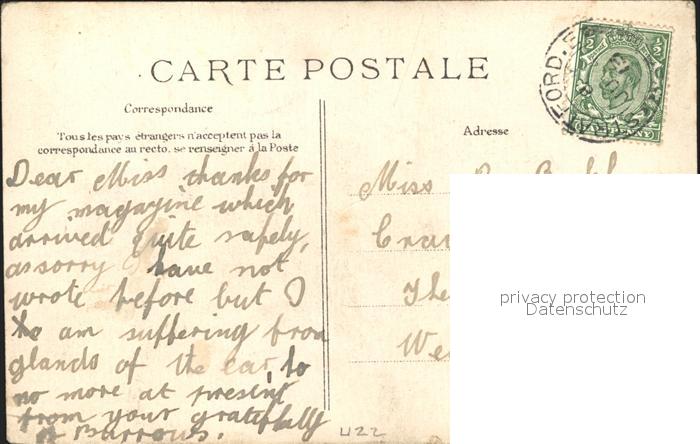 CARTE POSTALE
Correspondance
Tous les pays étrangers n'acceptent pas la
correspondance au recto, se renseigner à la Poste
Adresse
Dear Miss thanks for
my magazine which
arrived quite safely,
as sorry I have not
wrote before but I
am suffering from
glands of the ear, so
no more at present
from your gratefully
A Burrows.
Miss
The
We
privacy protection
Datenschutz
422